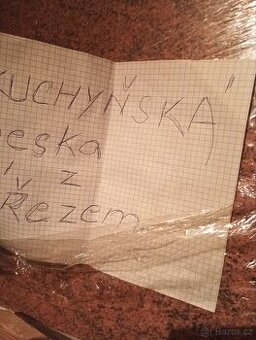 KUCHYŇSKÁ"
eska
z
Řezem
Bazos.cz